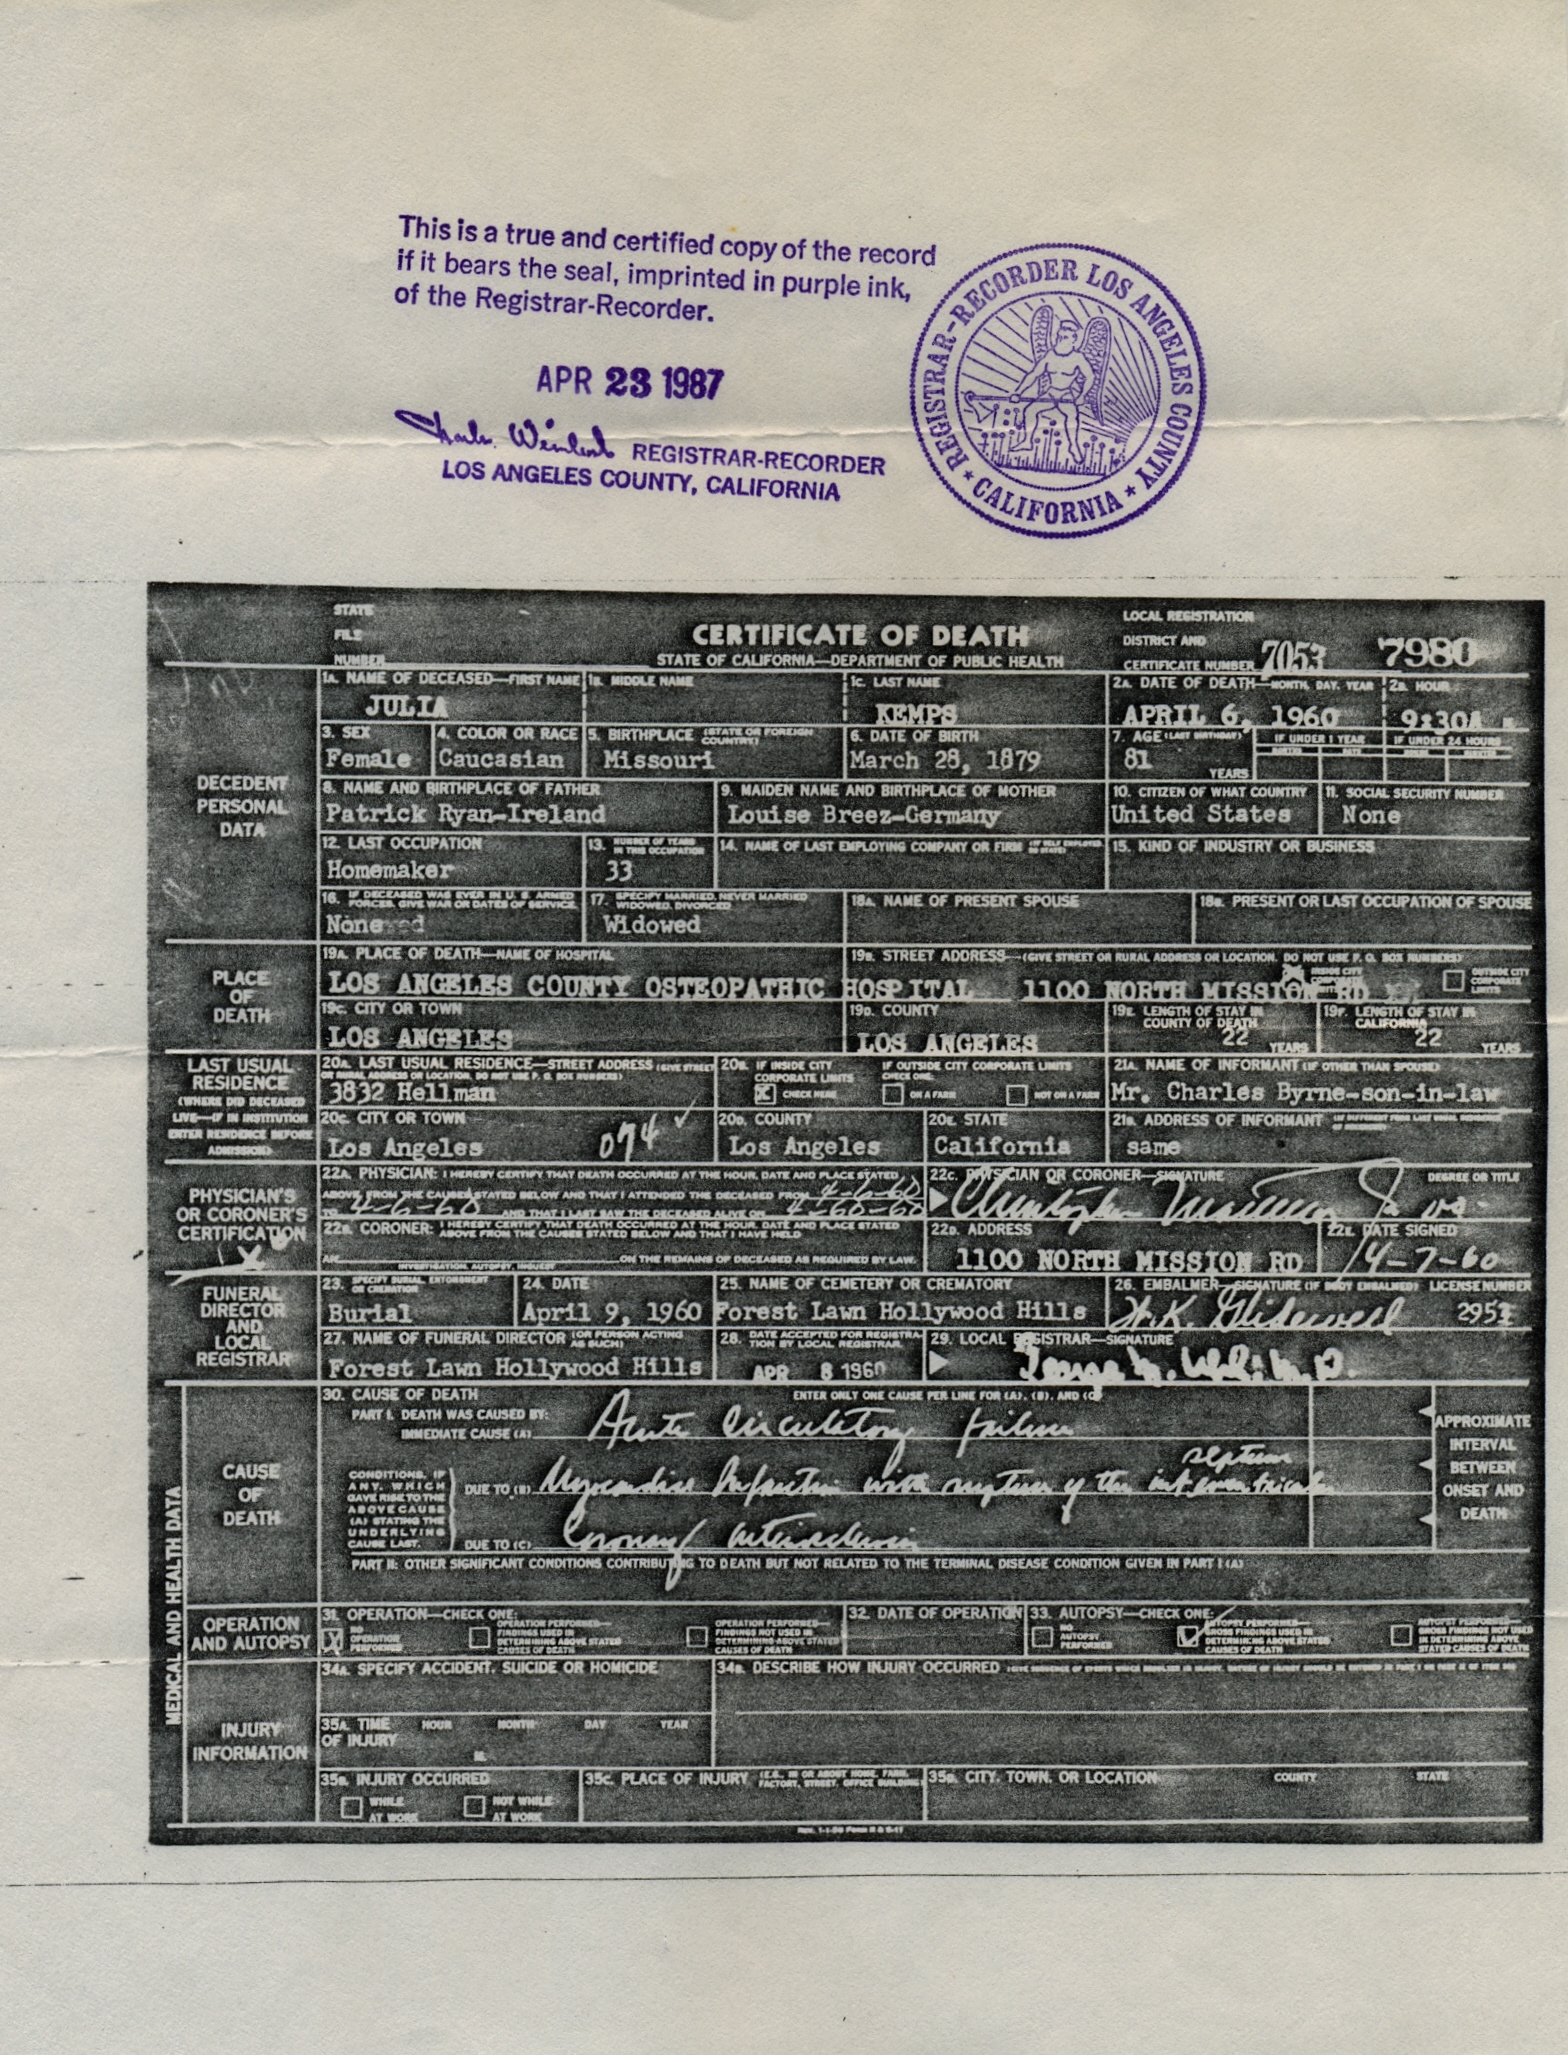 This is a true and certified copy of the record
if it bears the seal, imprinted in purple ink,
of the Registrar-Recorder.
APR 23 1987
REGISTRAR-RECORDER
LOS ANGELES COUNTY, CALIFORNIA
REGISTRAR-RECORDER LOS ANGELES COUNTY
★ CALIFORNIA ★
STATE
FILE
NUMBER
CERTIFICATE OF DEATH
STATE OF CALIFORNIA—DEPARTMENT OF PUBLIC HEALTH
LOCAL REGISTRATION
DISTRICT AND
CERTIFICATE NUMBER 7053 7980
DECEDENT
PERSONAL
DATA
1A. NAME OF DECEASED—FIRST NAME 1B. MIDDLE NAME 1C. LAST NAME 2A. DATE OF DEATH—MONTH, DAY, YEAR 2B. HOUR
JULIA KEMPS APRIL 6, 1960 9:30A M
3. SEX 4. COLOR OR RACE 5. BIRTHPLACE (STATE OR FOREIGN COUNTRY) 6. DATE OF BIRTH 7. AGE (LAST BIRTHDAY) IF UNDER 1 YEAR IF UNDER 24 HOURS
Female Caucasian Missouri March 28, 1879 81 YEARS
8. NAME AND BIRTHPLACE OF FATHER 9. MAIDEN NAME AND BIRTHPLACE OF MOTHER 10. CITIZEN OF WHAT COUNTRY 11. SOCIAL SECURITY NUMBER
Patrick Ryan-Ireland Louise Breez-Germany United States None
12. LAST OCCUPATION 13. NUMBER OF YEARS IN THIS OCCUPATION 14. NAME OF LAST EMPLOYING COMPANY OR FIRM (IF SELF EMPLOYED, SO STATE) 15. KIND OF INDUSTRY OR BUSINESS
Homemaker 33
16. IF DECEASED WAS EVER IN U. S. ARMED FORCES, GIVE WAR OR DATES OF SERVICE 17. SPECIFY MARRIED, NEVER MARRIED WIDOWED, DIVORCED 18A. NAME OF PRESENT SPOUSE 18B. PRESENT OR LAST OCCUPATION OF SPOUSE
None Widowed
PLACE
OF
DEATH
19A. PLACE OF DEATH—NAME OF HOSPITAL 19B. STREET ADDRESS—(GIVE STREET OR RURAL ADDRESS OR LOCATION. DO NOT USE P. O. BOX NUMBERS)
LOS ANGELES COUNTY OSTEOPATHIC HOSPITAL 1100 NORTH MISSION RD INSIDE CITY CORPORATE LIMITS OUTSIDE CITY CORPORATE LIMITS
19C. CITY OR TOWN 19D. COUNTY 19E. LENGTH OF STAY IN COUNTY OF DEATH 19F. LENGTH OF STAY IN CALIFORNIA
LOS ANGELES LOS ANGELES 22 YEARS 22 YEARS
LAST USUAL
RESIDENCE
(WHERE DID DECEASED
LIVE—IF IN INSTITUTION
ENTER RESIDENCE BEFORE
ADMISSION)
20A. LAST USUAL RESIDENCE—STREET ADDRESS (GIVE STREET OR RURAL ADDRESS OR LOCATION. DO NOT USE P. O. BOX NUMBERS) 20B. IF INSIDE CITY CORPORATE LIMITS IF OUTSIDE CITY CORPORATE LIMITS CHECK ONE: 21A. NAME OF INFORMANT (IF OTHER THAN SPOUSE)
3832 Hellman X CHECK HERE ON A FARM NOT ON A FARM Mr. Charles Byrne-son-in-law
20C. CITY OR TOWN 20D. COUNTY 20E. STATE 21B. ADDRESS OF INFORMANT
Los Angeles 074 ✓ Los Angeles California same
PHYSICIAN'S
OR CORONER'S
CERTIFICATION
22A. PHYSICIAN: I HEREBY CERTIFY THAT DEATH OCCURRED AT THE HOUR, DATE AND PLACE STATED
ABOVE FROM THE CAUSES STATED BELOW AND THAT I ATTENDED THE DECEASED FROM 4-6-60
TO 4-6-60 AND THAT I LAST SAW THE DECEASED ALIVE ON
22C. PHYSICIAN OR CORONER—SIGNATURE DEGREE OR TITLE
22B. CORONER: I HEREBY CERTIFY THAT DEATH OCCURRED AT THE HOUR, DATE AND PLACE STATED
ABOVE FROM THE CAUSES STATED BELOW AND THAT I HAVE HELD
AN INVESTIGATION, AUTOPSY, INQUEST ON THE REMAINS OF DECEASED AS REQUIRED BY LAW.
22D. ADDRESS 22E. DATE SIGNED
1100 NORTH MISSION RD 4-7-60
FUNERAL
DIRECTOR
AND
LOCAL
REGISTRAR
23. SPECIFY BURIAL, ENTOMBMENT OR CREMATION 24. DATE 25. NAME OF CEMETERY OR CREMATORY 26. EMBALMER—SIGNATURE (IF BODY EMBALMED) LICENSE NUMBER
Burial April 9, 1960 Forest Lawn Hollywood Hills
27. NAME OF FUNERAL DIRECTOR (OR PERSON ACTING AS SUCH) 28. DATE ACCEPTED FOR REGISTRATION BY LOCAL REGISTRAR 29. LOCAL REGISTRAR—SIGNATURE
Forest Lawn Hollywood Hills APR 8 1960
MEDICAL AND HEALTH DATA
CAUSE
OF
DEATH
30. CAUSE OF DEATH ENTER ONLY ONE CAUSE PER LINE FOR (A), (B), AND (C)
PART I. DEATH WAS CAUSED BY:
IMMEDIATE CAUSE (A) Acute circulatory failure
CONDITIONS, IF
ANY, WHICH
GAVE RISE TO THE
ABOVE CAUSE
(A) STATING THE
UNDERLYING
CAUSE LAST.
septum
DUE TO (B) Myocardial Infarction with rupture of the interventricular
DUE TO (C) Coronary
APPROXIMATE
INTERVAL
BETWEEN
ONSET AND
DEATH
PART II: OTHER SIGNIFICANT CONDITIONS CONTRIBUTING TO DEATH BUT NOT RELATED TO THE TERMINAL DISEASE CONDITION GIVEN IN PART I (A)
OPERATION
AND AUTOPSY
31. OPERATION—CHECK ONE: 32. DATE OF OPERATION 33. AUTOPSY—CHECK ONE:
X NO OPERATION PERFORMED
OPERATION PERFORMED—FINDINGS USED IN DETERMINING ABOVE STATED CAUSES OF DEATH
OPERATION PERFORMED—FINDINGS NOT USED IN DETERMINING ABOVE STATED CAUSES OF DEATH
NO AUTOPSY PERFORMED
AUTOPSY PERFORMED—GROSS FINDINGS USED IN DETERMINING ABOVE STATED CAUSES OF DEATH
AUTOPSY PERFORMED—GROSS FINDINGS NOT USED IN DETERMINING ABOVE STATED CAUSES OF DEATH
INJURY
INFORMATION
34A. SPECIFY ACCIDENT, SUICIDE OR HOMICIDE 34B. DESCRIBE HOW INJURY OCCURRED
35A. TIME OF INJURY HOUR MONTH DAY YEAR
M.
35B. INJURY OCCURRED 35C. PLACE OF INJURY (E.G., IN OR ABOUT HOME, FARM, FACTORY, STREET, OFFICE BUILDING) 35D. CITY, TOWN, OR LOCATION COUNTY STATE
WHILE AT WORK NOT WHILE AT WORK